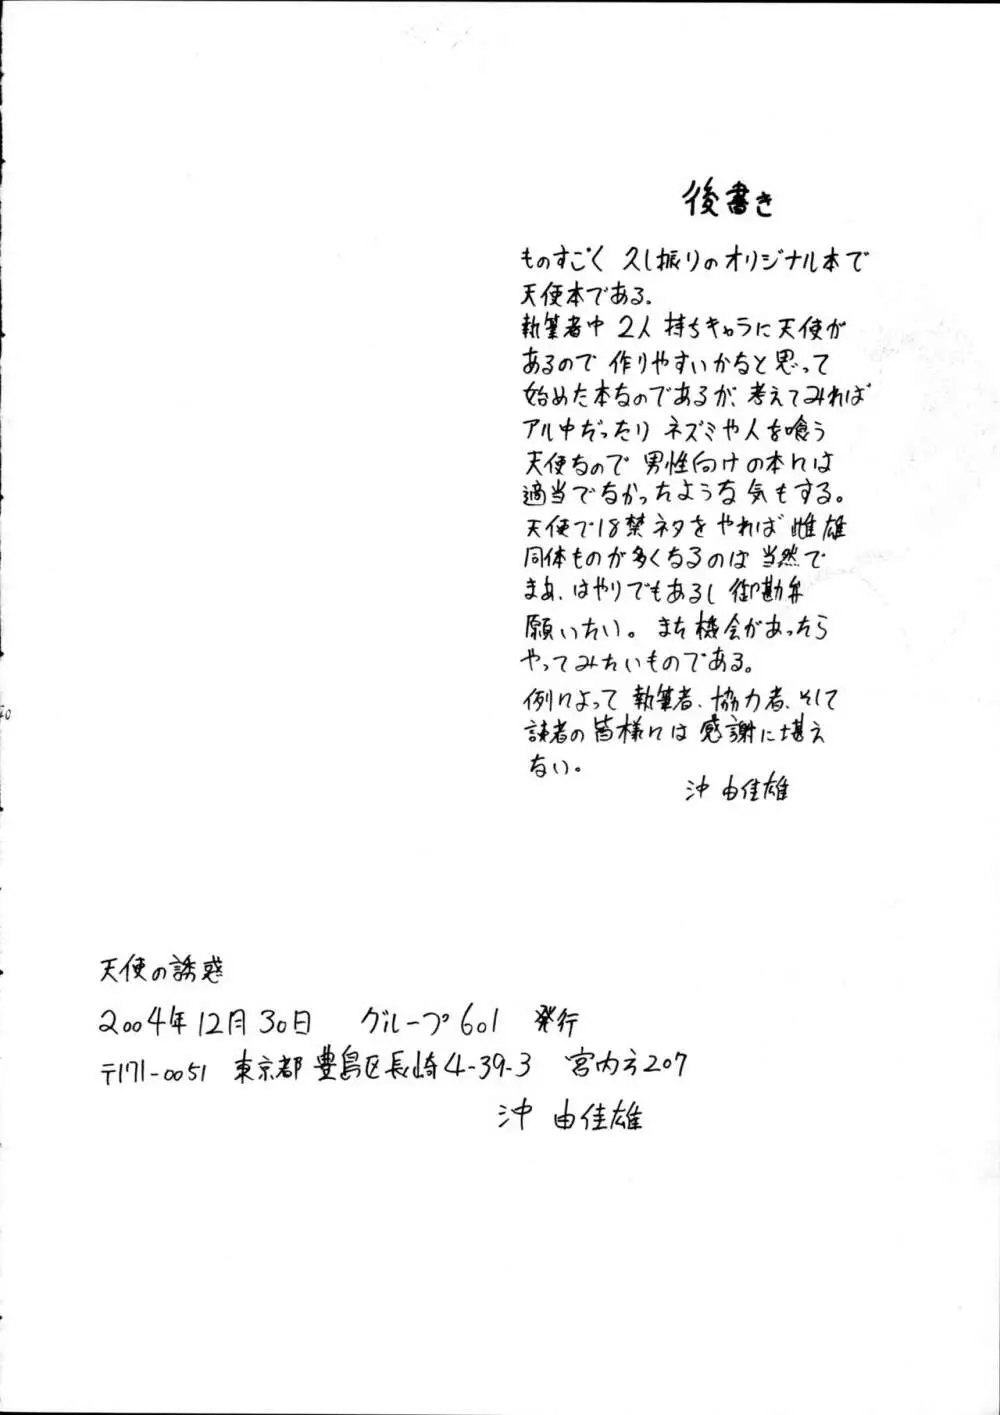 後書き
ものすごく 久し振りのオリジナル本で
天使本である。
執筆者中 2人 持ちキャラに天使が
あるので 作りやすいかなと思って
始めた本なのであるが、考えてみれば
アル中だったり ネズミや人を喰う
天使なので 男性向けの本には
適当でなかったような気もする。
天使で18禁ネタをやれば 雌雄
同体ものが多くなるのは 当然で
まぁ、はやりでもあるし 御勘弁
願いたい。 また機会があったら
やってみたいものである。
例によって 執筆者、協力者、そして
読者の皆様には 感謝に堪え
ない。
沖 由佳雄
40
天使の誘惑
2004年12月30日 グループ601 発行
〒171-0051 東京都 豊島区長崎4-39-3 宮内方207
沖 由佳雄